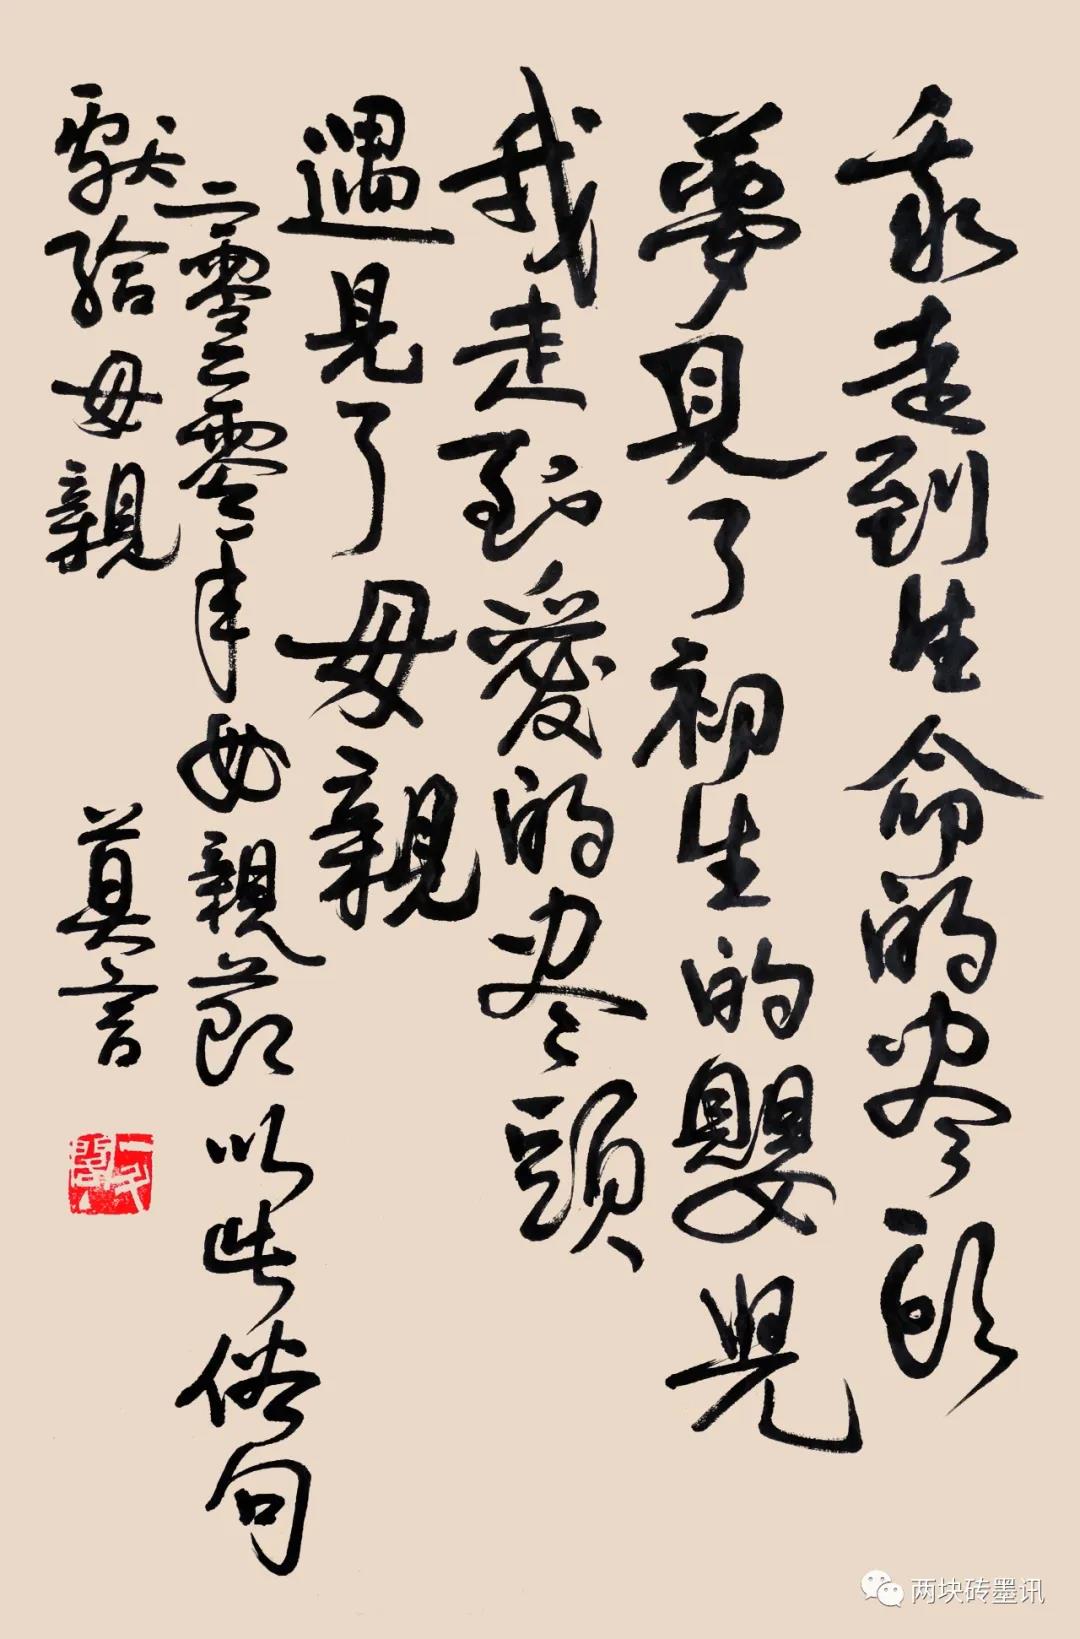 我走到生命的尽頭
夢見了初生的嬰兒
我走到愛的尽頭
遇見了母親
二零二零年母親節以此俗句
獻給母親
莫言
两块砖墨讯